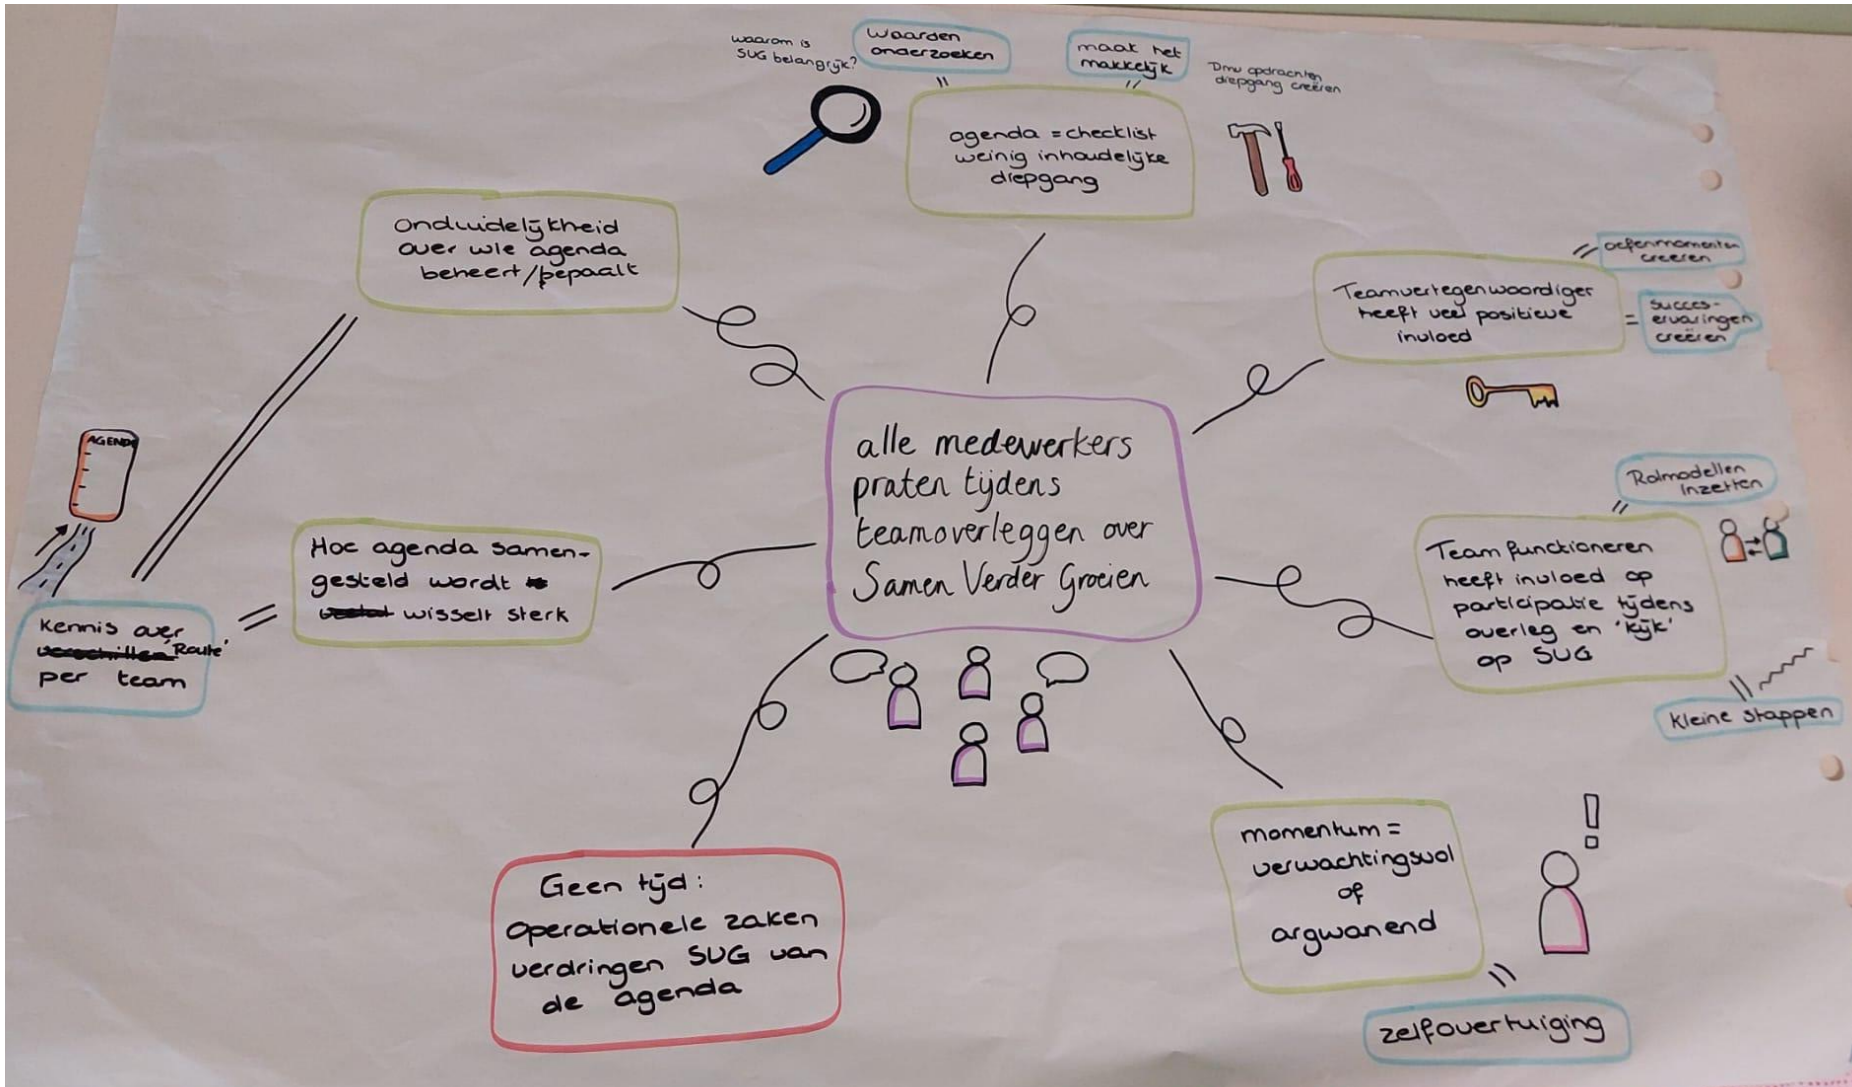 waarom is
SVG belangrijk?
Waarden
onderzoeken
maak het
makkelijk
Dmv opdrachten
diepgang creëren
agenda = checklist
weinig inhoudelijke
diepgang
Onduidelijkheid
over wie agenda
beheert/bepaalt
Teamvertegenwoordiger
heeft veel positieve
invloed
oefenmomenten
creëren
succes-
ervaringen
creëren
alle medewerkers
praten tijdens
teamoverleggen over
Samen Verder Groeien
AGENDA
Hoe agenda samen-
gesteld wordt
wisselt sterk
Kennis over
'Route'
per team
Rolmodellen
inzetten
Team functioneren
heeft invloed op
participatie tijdens
overleg en 'kijk'
op SVG
kleine stappen
Geen tijd:
Operationele zaken
verdringen SVG van
de agenda
momentum =
verwachtingsvol
of
argwanend
zelfovertuiging